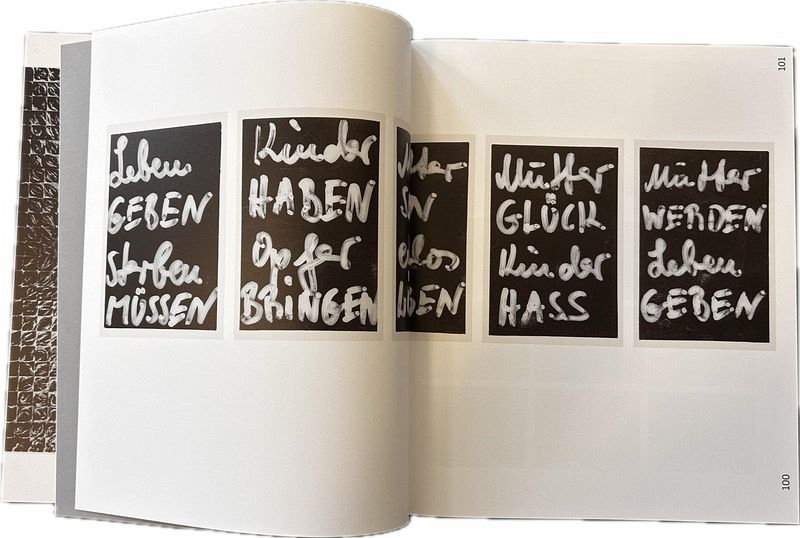 Leben
GEBEN
Sterben
MÜSSEN
Kinder
HABEN
Opfer
BRINGEN
Mutter
GLÜCK
Kinder
HASS
Mutter
WERDEN
Leben
GEBEN
101
100